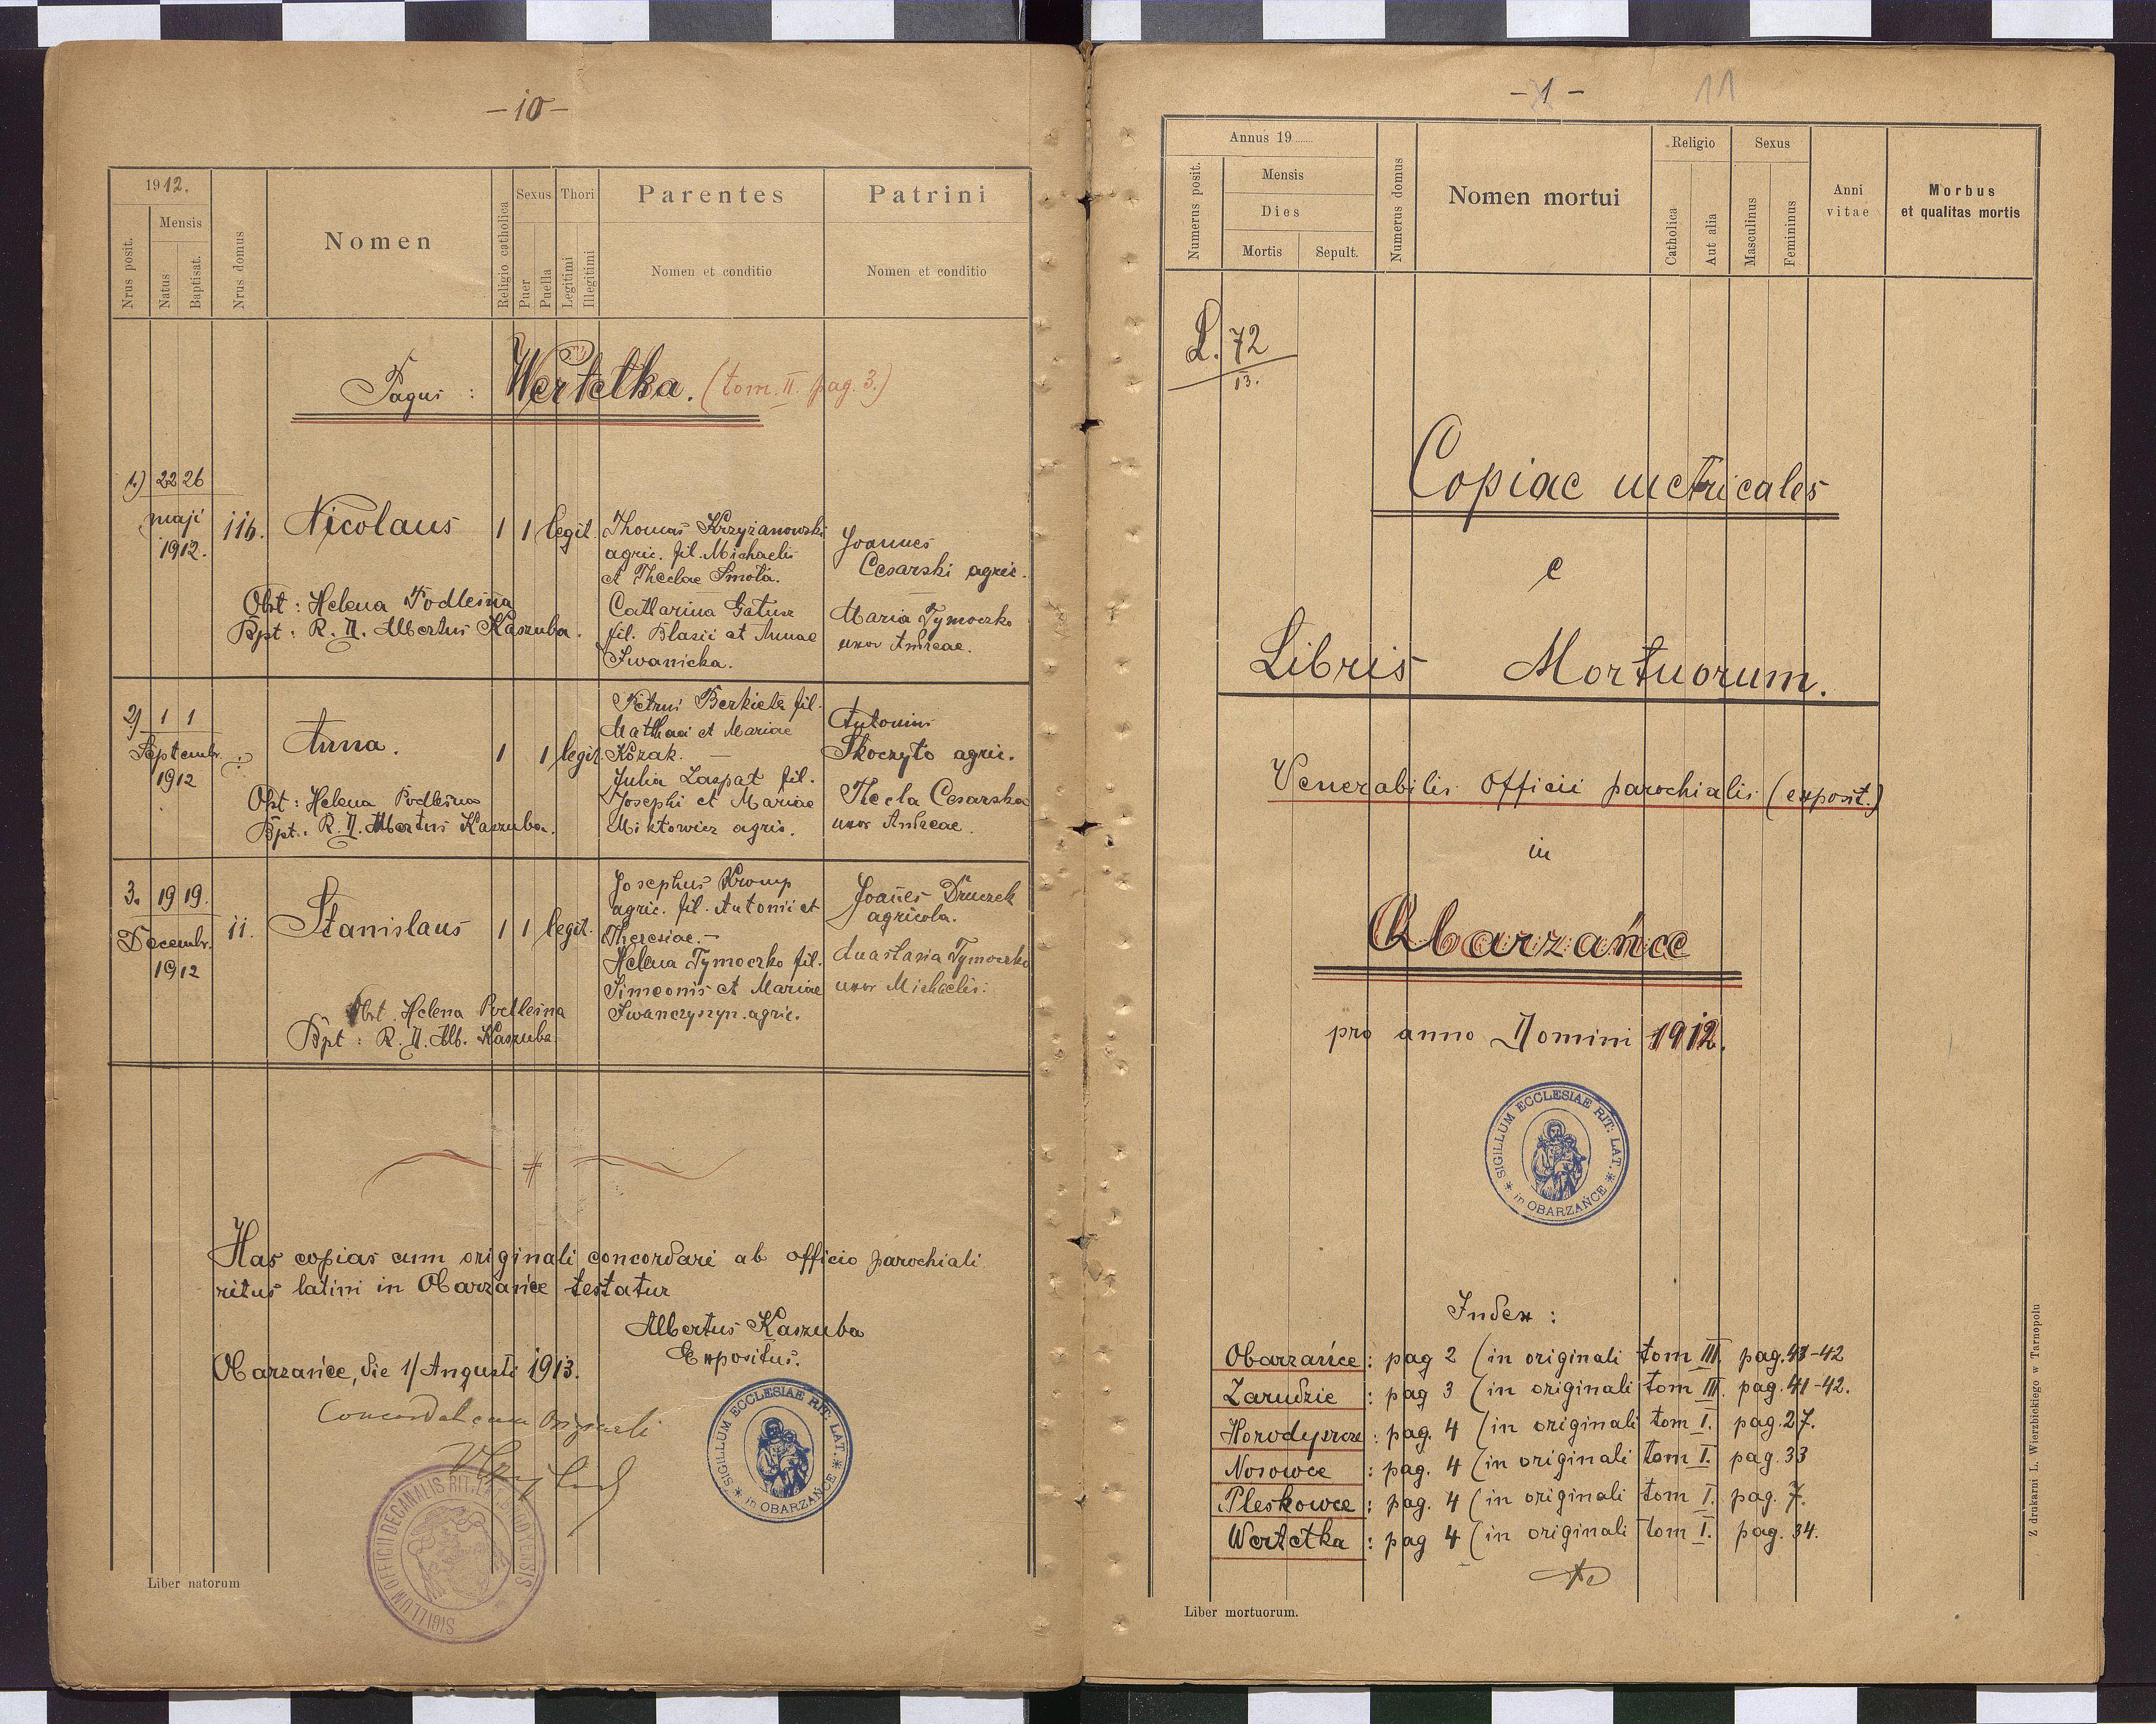 - 10 -
1912.
Mensis
Nrus posit.
Natus
Baptisat.
Nrus domus
Nomen
Religio catholica
Sexus
Puer
Puella
Thori
Legitimi
Illegitimi
Parentes
Nomen et conditio
Patrini
Nomen et conditio
Pagus : Wertelka. (tom. II pag. 3.)
1) 22 26
maji
1912.
116.
Nicolaus
1 1 legit.
Thomas Krzyżanowski
agric. fil. Michaelis
et Theclae Smota.
Catharina Gatusz
fil. Blasii et Annae
Iwanicka.
Joannes
Cesarski agric.
Maria Tymoczko
uxor Andreae.
Obst : Helena Podleśna
Bpt : R. D. Albertus Kaszuba.
2) 1 1
Septembr.
1912
Anna.
1 1 legit.
Petrus Berkieta fil.
Mathaei et Mariae
Kozak. —
Julia Laspat fil.
Josephi et Mariae
Miktowicz agric.
Antonius
Skoczyto agric.
Thecla Cesarska
uxor Andreae.
Obst : Helena Podleśna
Bpt. : R. D. Albertus Kaszuba.
3. 19 19.
Decembr.
1912
11.
Stanislaus
1 1 legit.
Josephus Kromp
agric. fil. Antonii et
Theresiae. —
Helena Tymoczko fil.
Simeonis et Mariae
Iwanczyszyn. agric.
Joañes Druczek
agricola.
Anastasia Tymoczko
uxor Michaelis.
Obst. Helena Podleśna
Bpt : R. D. Alb. Kaszuba.
Has copias cum originali concordari ab officio parochiali
ritus latini in Obarzańce testatur
Albertus Kaszuba
Expositus.
Obarzańce, die 1/Augusti 1913.
Concordat cum Originali
SIGILLUM ECCLESIAE RIT: LAT. * in OBARZAŃCE *
SIGILLUM OFFICII DECANALIS RIT. LAT. BRODYENSIS
Liber natorum
- 1 -
11
Annus 19......
Numerus posit.
Mensis
Dies
Mortis
Sepult.
Numerus domus
Nomen mortui
Religio
Catholica
Aut alia
Sexus
Masculinus
Femininus
Anni
vitae
Morbus
et qualitas mortis
L. 72
13.
Copiae metricales
e
Libris Mortuorum.
Venerabilis Officii parochialis (exposit.)
in
Obarzańce
pro anno Domini 1912.
SIGILLUM ECCLESIAE RIT: LAT. * in OBARZAŃCE *
Index :
Obarzańce : pag 2 (in originali tom III. pag. 41-42
Zarudzie : pag 3 (in originali tom III. pag. 41-42.
Horodyszcze : pag. 4 (in originali tom I. pag. 27.
Nosowce : pag. 4 (in originali tom I. pag. 33
Pleskowce : pag. 4 (in originali tom I. pag. 7.
Wertelka : pag 4 (in originali tom I. pag. 34.
Z drukarni L. Wierzbickiego w Tarnopolu
Liber mortuorum.